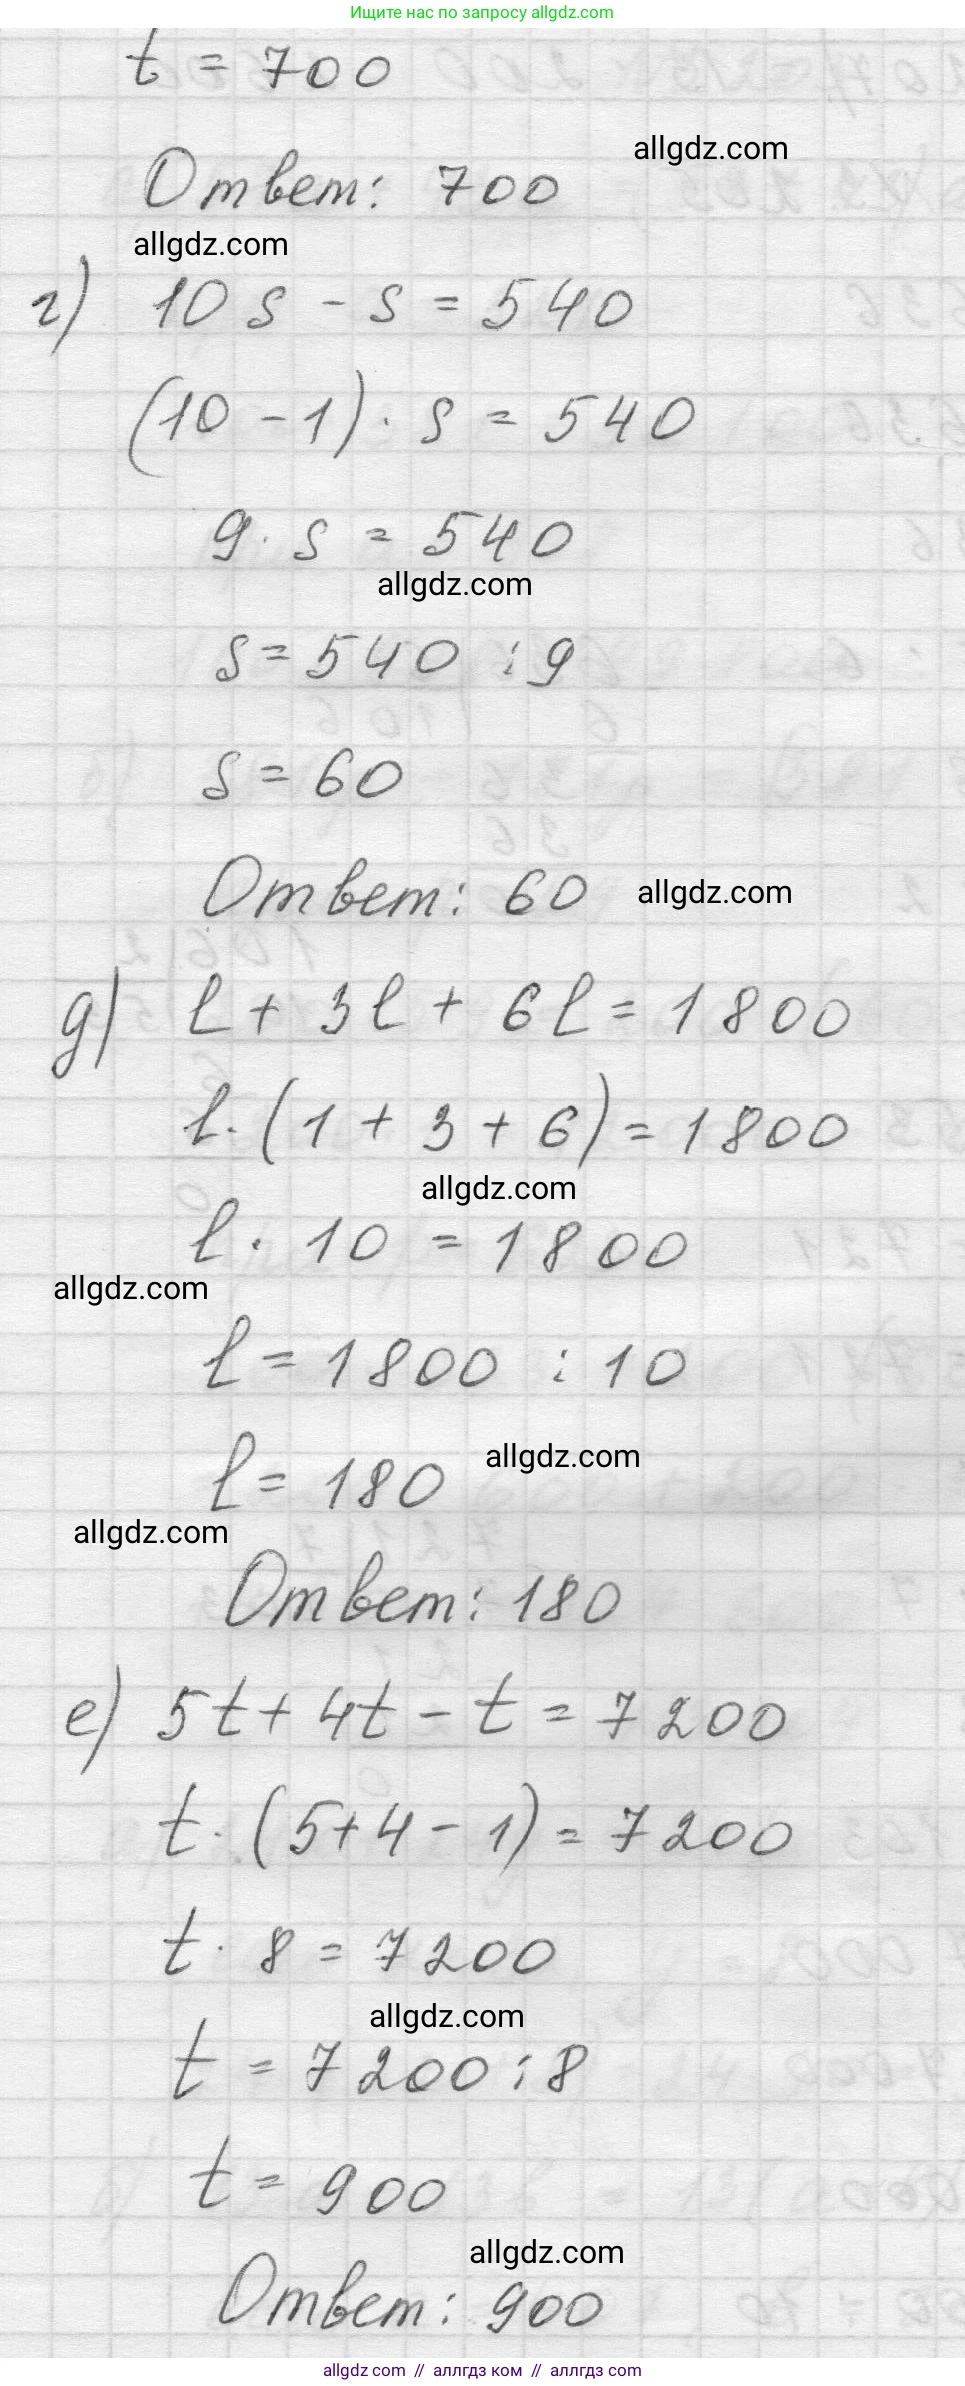 Ищите нас по запросу allgdz.com
t = 700
allgdz.com
Ответ: 700
allgdz.com
г) 10 s - s = 540
(10 - 1) · s = 540
9 · s = 540
allgdz.com
s = 540 : 9
s = 60
Ответ: 60 allgdz.com
д) l + 3l + 6l = 1800
l · (1 + 3 + 6) = 1800
allgdz.com
l · 10 = 1800
allgdz.com
l = 1800 : 10
l = 180 allgdz.com
allgdz.com
Ответ: 180
е) 5t + 4t - t = 7200
t · (5+4 - 1) = 7200
t · 8 = 7200
allgdz.com
t = 7200 : 8
t = 900
allgdz.com
Ответ: 900
allgdz com // аллгдз ком // аллгдз com